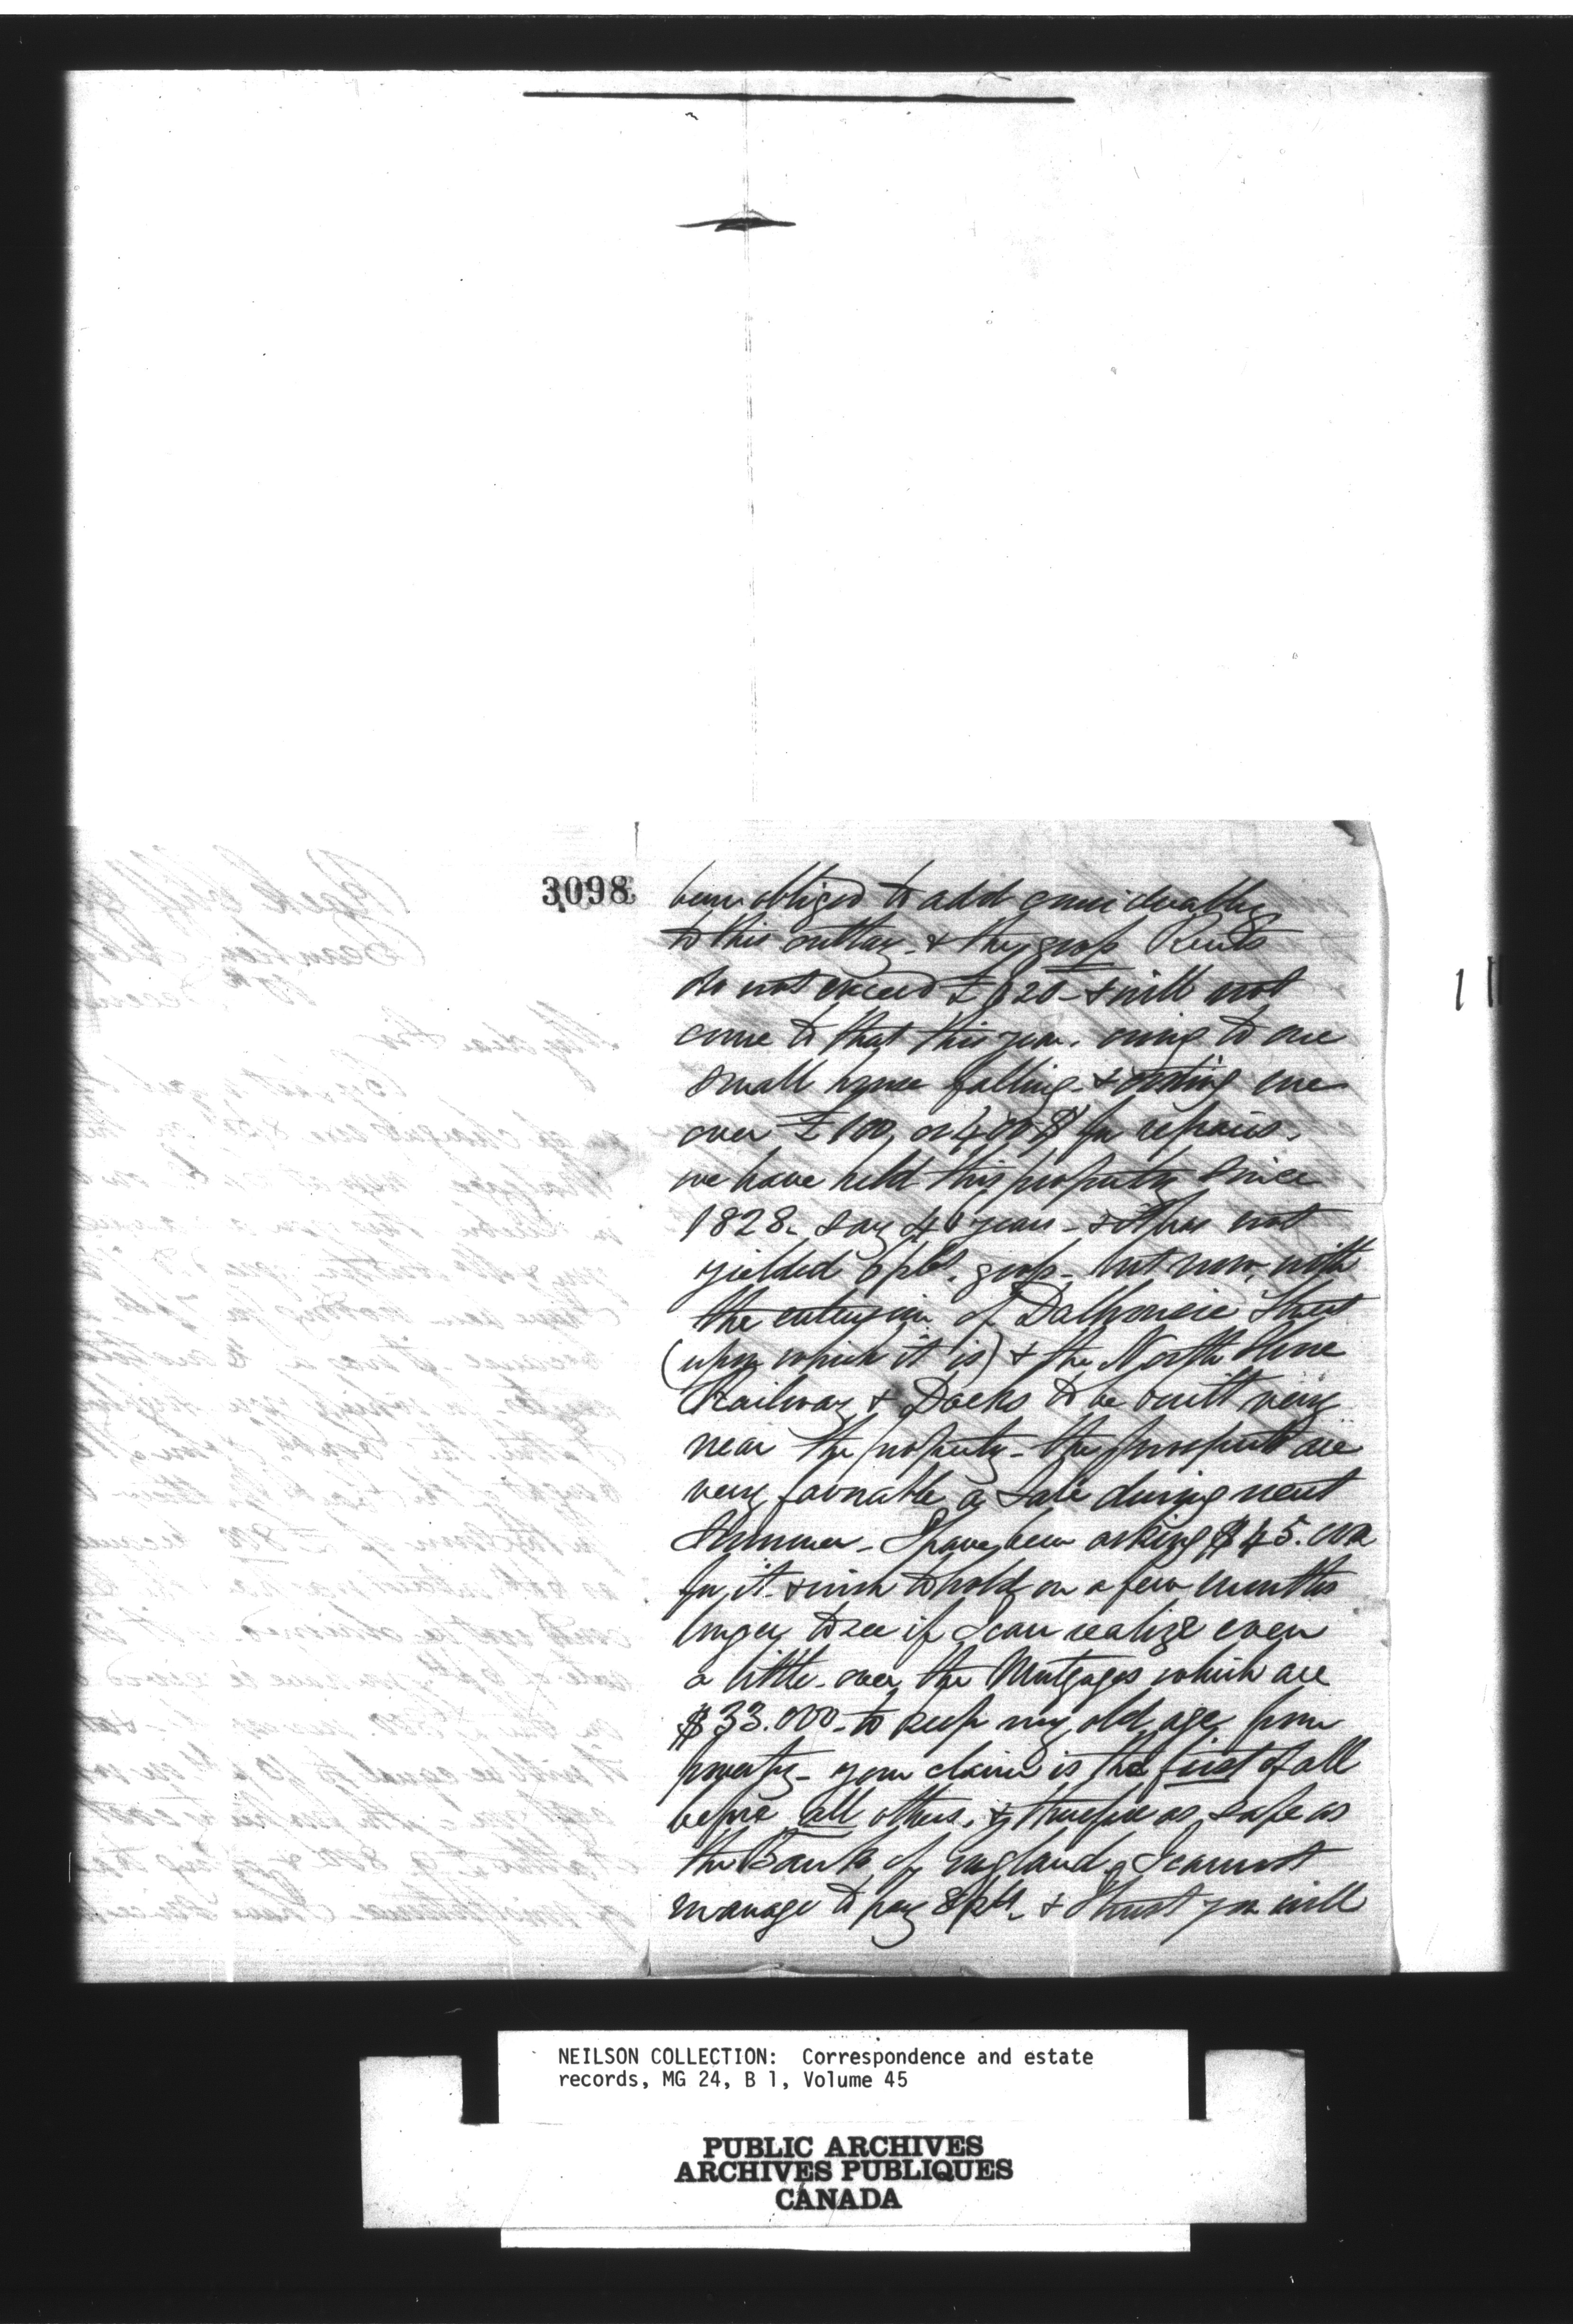 3098
been obliged to add considerably
to this outlay - & the gross Rents
do not exceed £ 620 - & will not
come to that this year. owing to one
small house falling - & costing me
over £100, or 400$ for repairs.
we have held this property since
1828 - say 40 years - & it has not
yielded 6 pCt. gross - but now, with
the extension of Dalhousie Street
(upon which it is) & the North Shore
Railway & Docks to be built very
near the property - the prospects are
very favorable of sale during next
Summer - I have been asking $45.000
for it - & wish to hold on a few months
longer to see if I can realize even
a little over the Mortgages which are
$33.000 - to keep my old age from
poverty - your claim is the first of all
before all others. & therefore as safe as
the Bank of England, I cannot
manage to pay 8 pCt. & I trust you will
NEILSON COLLECTION: Correspondence and estate
records, MG 24, B 1, Volume 45
PUBLIC ARCHIVES
ARCHIVES PUBLIQUES
CANADA